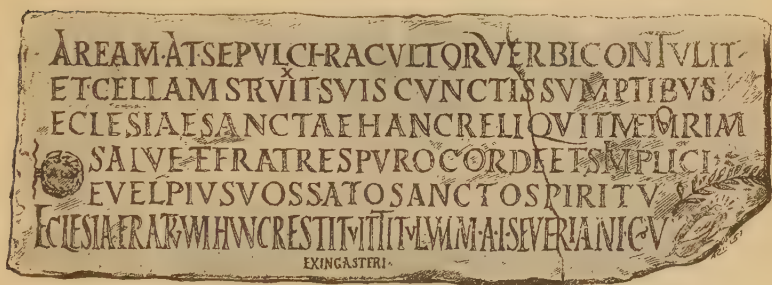 AREAM·AT·SEPVLCHRA CVLTOR VERBI CONTVLIT·
ET CELLAM STRVXIT SVIS CVNCTIS SVMPTIBVS
ECLESIAE SANCTAE HANC RELIQVIT MEMORIAM
SALVETE FRATRES PVRO CORDE ET SIMPLICI·
EVELPIVS VOS SATO SANCTO SPIRITV
ECLESIA FRATRVM HVNC RESTITVIT TITVLVM·M·A·I·SEVERIANI C·V
EX ING ASTERI·